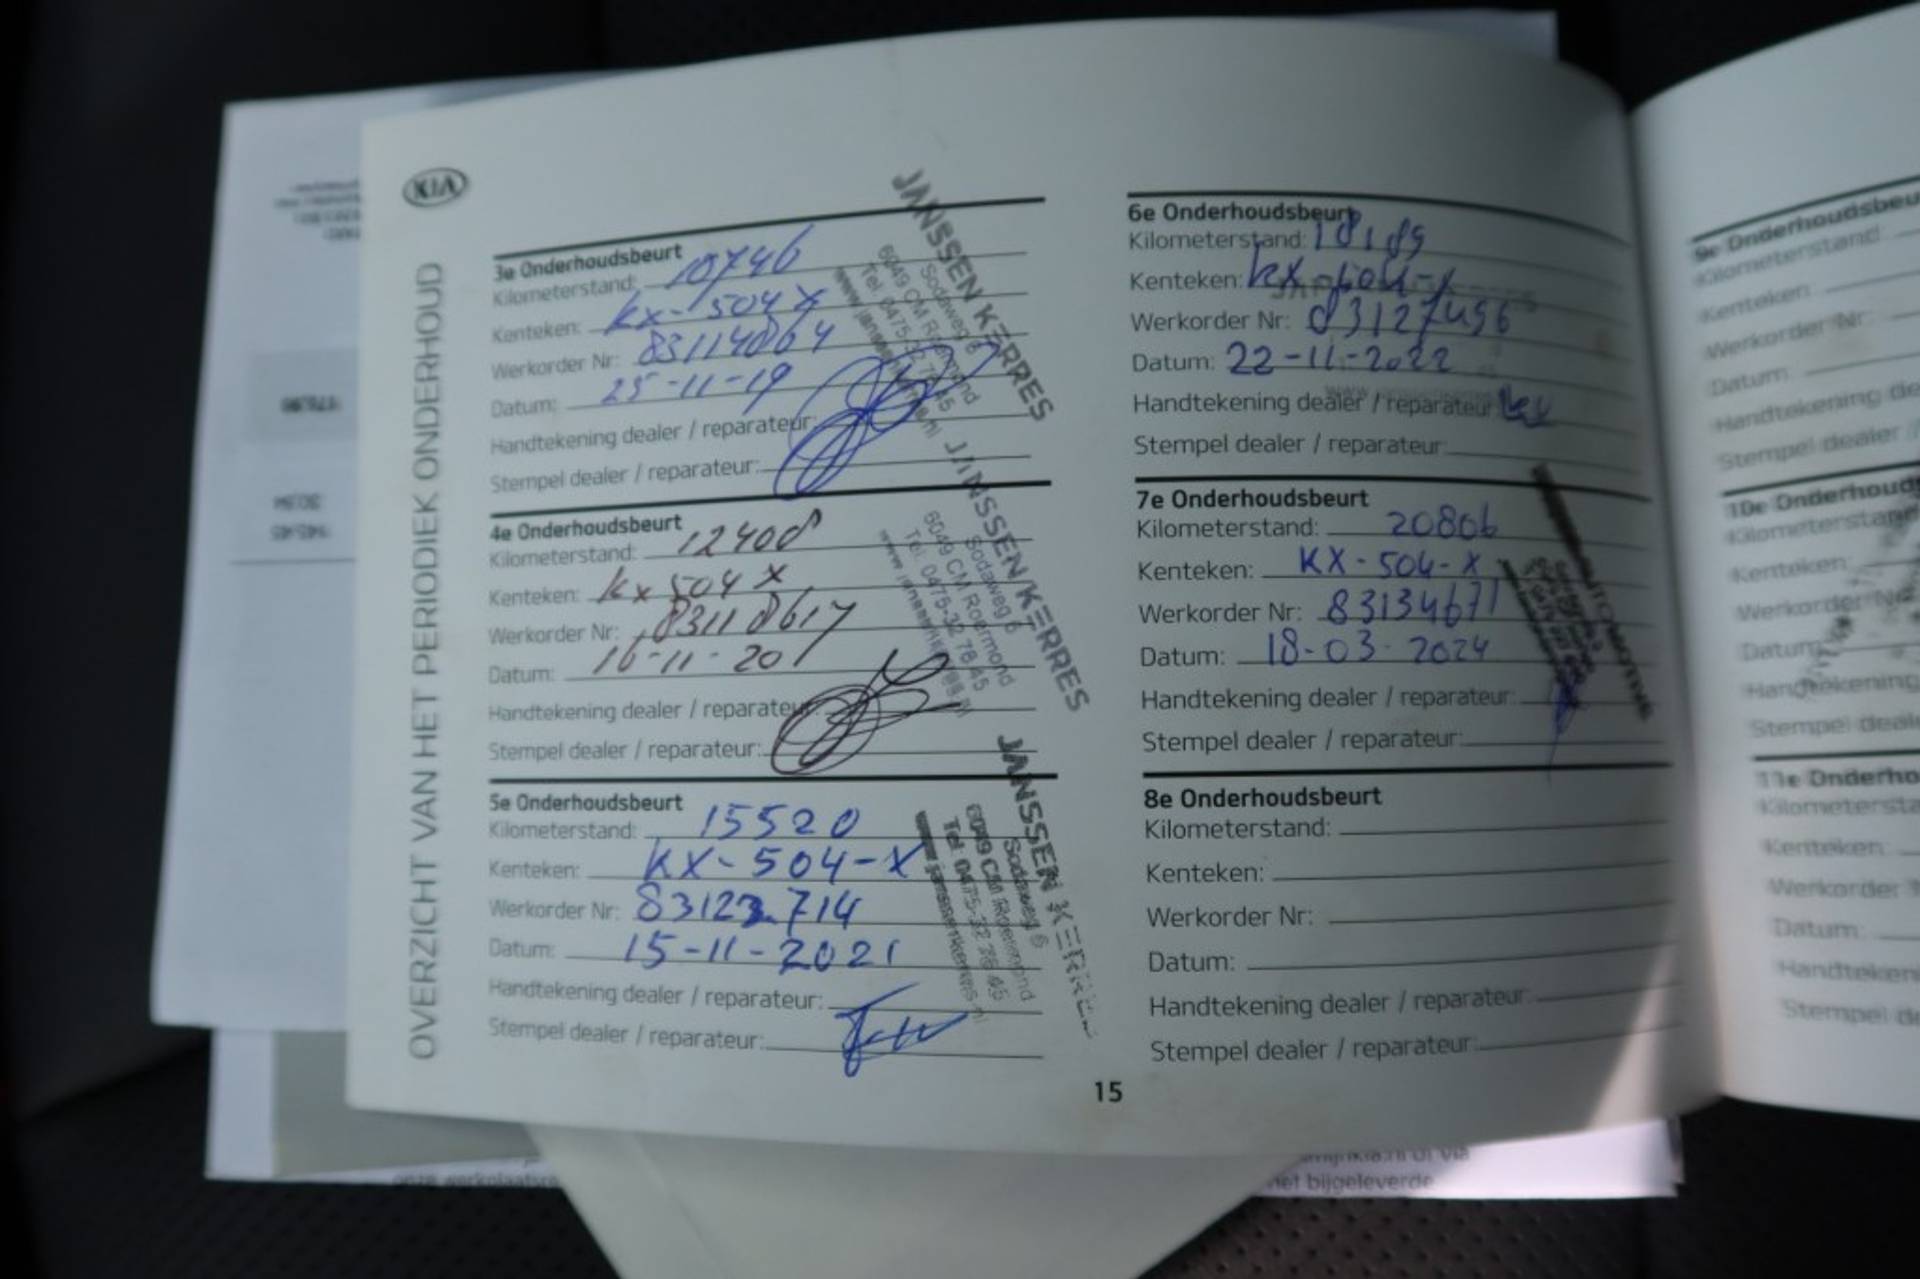 KIA
OVERZICHT VAN HET PERIODIEK ONDERHOUD
3e Onderhoudsbeurt
Kilometerstand: 10746
Kenteken: kx-504 x
Werkorder Nr: 83114864
Datum: 25-11-19
Handtekening dealer / reparateur:
Stempel dealer / reparateur:
JANSSEN KERRES
Sodaweg 6
6049 CM Roermond
Tel. 0475-32 78 45
4e Onderhoudsbeurt
Kilometerstand: 12408
Kenteken: kx 504 x
Werkorder Nr: 83118617
Datum: 16-11-20
Handtekening dealer / reparateur:
Stempel dealer / reparateur:
JANSSEN KERRES
Sodaweg 6
6049 CM Roermond
Tel. 0475-32 78 45
5e Onderhoudsbeurt
Kilometerstand: 15520
Kenteken: KX-504-X
Werkorder Nr: 83123714
Datum: 15-11-2021
Handtekening dealer / reparateur:
Stempel dealer / reparateur:
JANSSEN KERRES
Sodaweg 6
6049 CM Roermond
Tel. 0475-32 78 45
6e Onderhoudsbeurt
Kilometerstand: 18189
Kenteken: kx-504-x
Werkorder Nr: 83127496
Datum: 22-11-2022
Handtekening dealer / reparateur:
Stempel dealer / reparateur:
7e Onderhoudsbeurt
Kilometerstand: 20806
Kenteken: KX-504-X
Werkorder Nr: 83134671
Datum: 18-03-2024
Handtekening dealer / reparateur:
Stempel dealer / reparateur:
8e Onderhoudsbeurt
Kilometerstand:
Kenteken:
Werkorder Nr:
Datum:
Handtekening dealer / reparateur:
Stempel dealer / reparateur:
15
9e Onderhoudsbeu
Kilometerstand
Kenteken
Werkorder Nr:
Datum:
Handtekening de
Stempel dealer
10e Onderhouds
Kilometerstand
Kenteken:
Werkorder Nr
Datum
Handtekening
Stempel deale
11e Onderho
Kilometersta
Kenteken:
Werkorder
Datum:
Handteken
Stempel de
het bijgeleverde